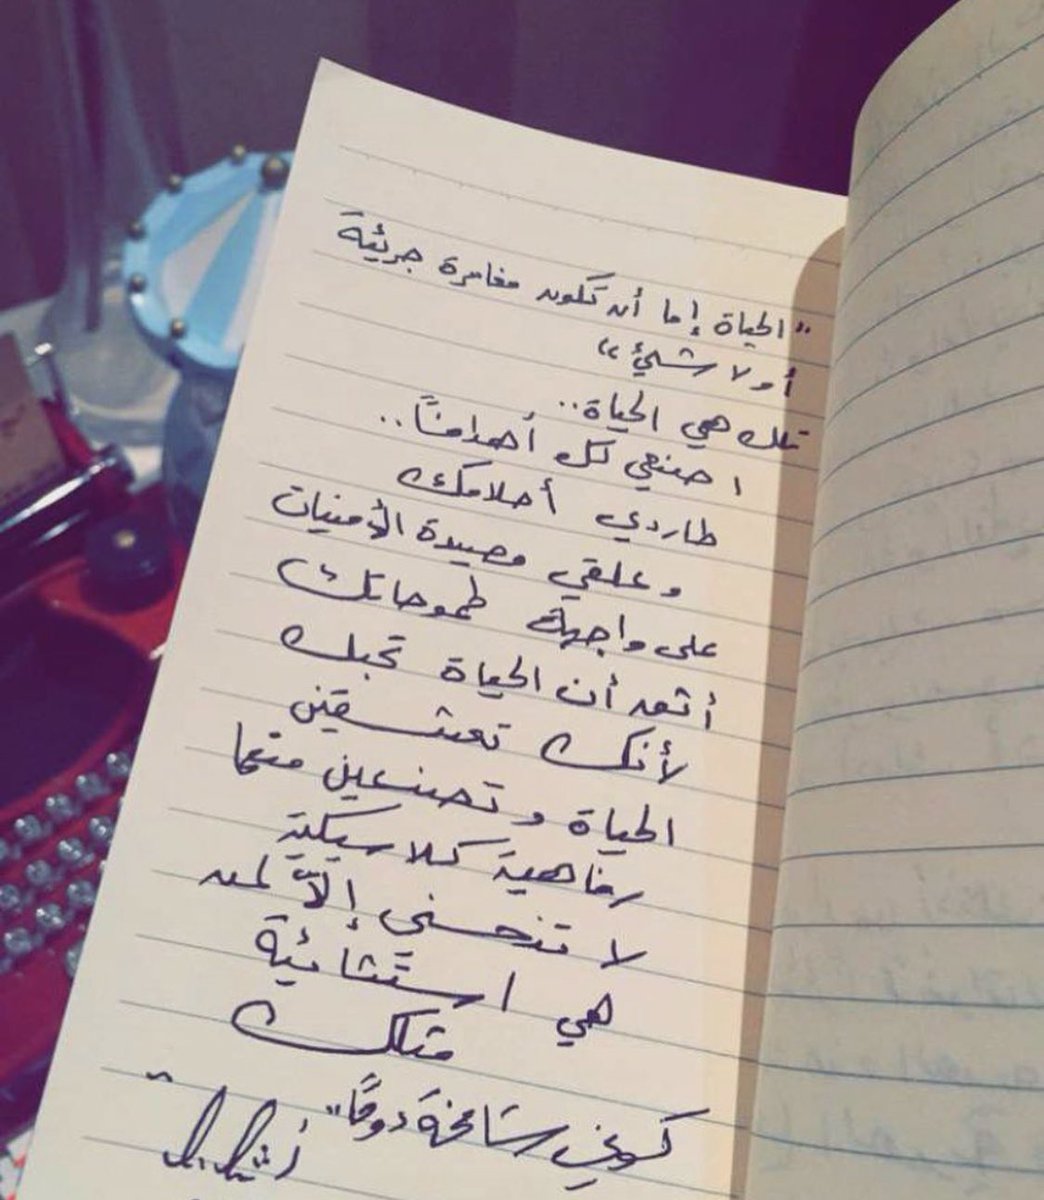 "الحياة إما أن تكون مغامرة جريئة
أو لا شيئ"
تلك هي الحياة..
اصنعي لك أهدافاً..
طاردي أحلامك
وعلقي مصيدة الأمنيات
على واجهة طموحاتك
أثق أن الحياة تحبك
لأنك تعشقين
الحياة وتصنعين منها
رفاهية كلاسيكية
لا تنحني إلّا لمن
هي استثنائية
مثلك
كوني شامخة دومًا"